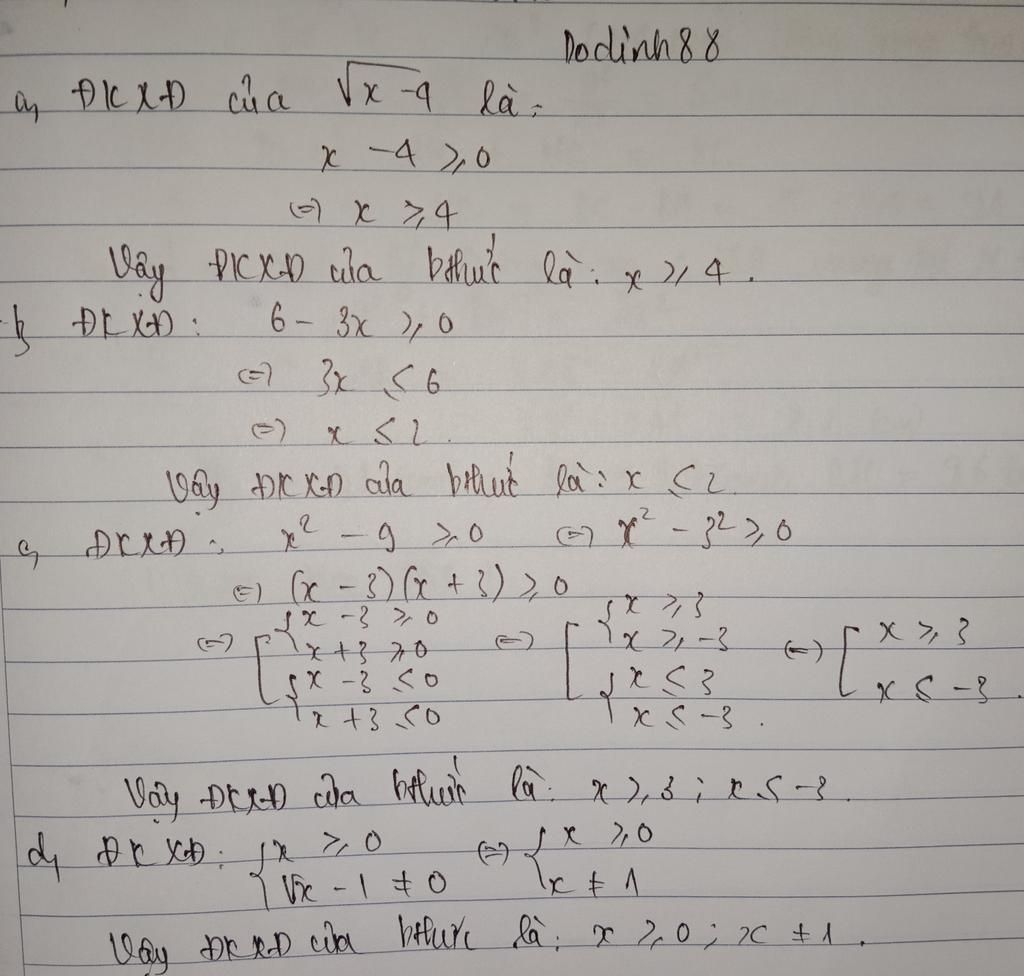 Dodinh88
a, ĐKXĐ của √x-4 là:
x - 4 ≥ 0
⇔ x ≥ 4
Vậy ĐKXĐ của bthức là: x ≥ 4.
b, ĐKXĐ: 6 - 3x ≥ 0
⇔ 3x ≤ 6
⇔ x ≤ 2.
Vậy ĐKXĐ của bthức là: x ≤ 2.
c, ĐKXĐ: x² - 9 ≥ 0 ⇔ x² - 3² ≥ 0
⇔ (x - 3)(x + 3) ≥ 0
⇔ [ { x - 3 ≥ 0 ⇔ [ { x ≥ 3 ⇔ [ x ≥ 3
x + 3 ≥ 0 x ≥ -3
{ x - 3 ≤ 0 { x ≤ 3 x ≤ -3.
x + 3 ≤ 0 x ≤ -3.
Vậy ĐKXĐ của bthức là: x ≥ 3; x ≤ -3.
d, ĐKXĐ: { x ≥ 0 ⇔ { x ≥ 0
√x - 1 ≠ 0 x ≠ 1
Vậy ĐKXĐ của bthức là: x ≥ 0; x ≠ 1.